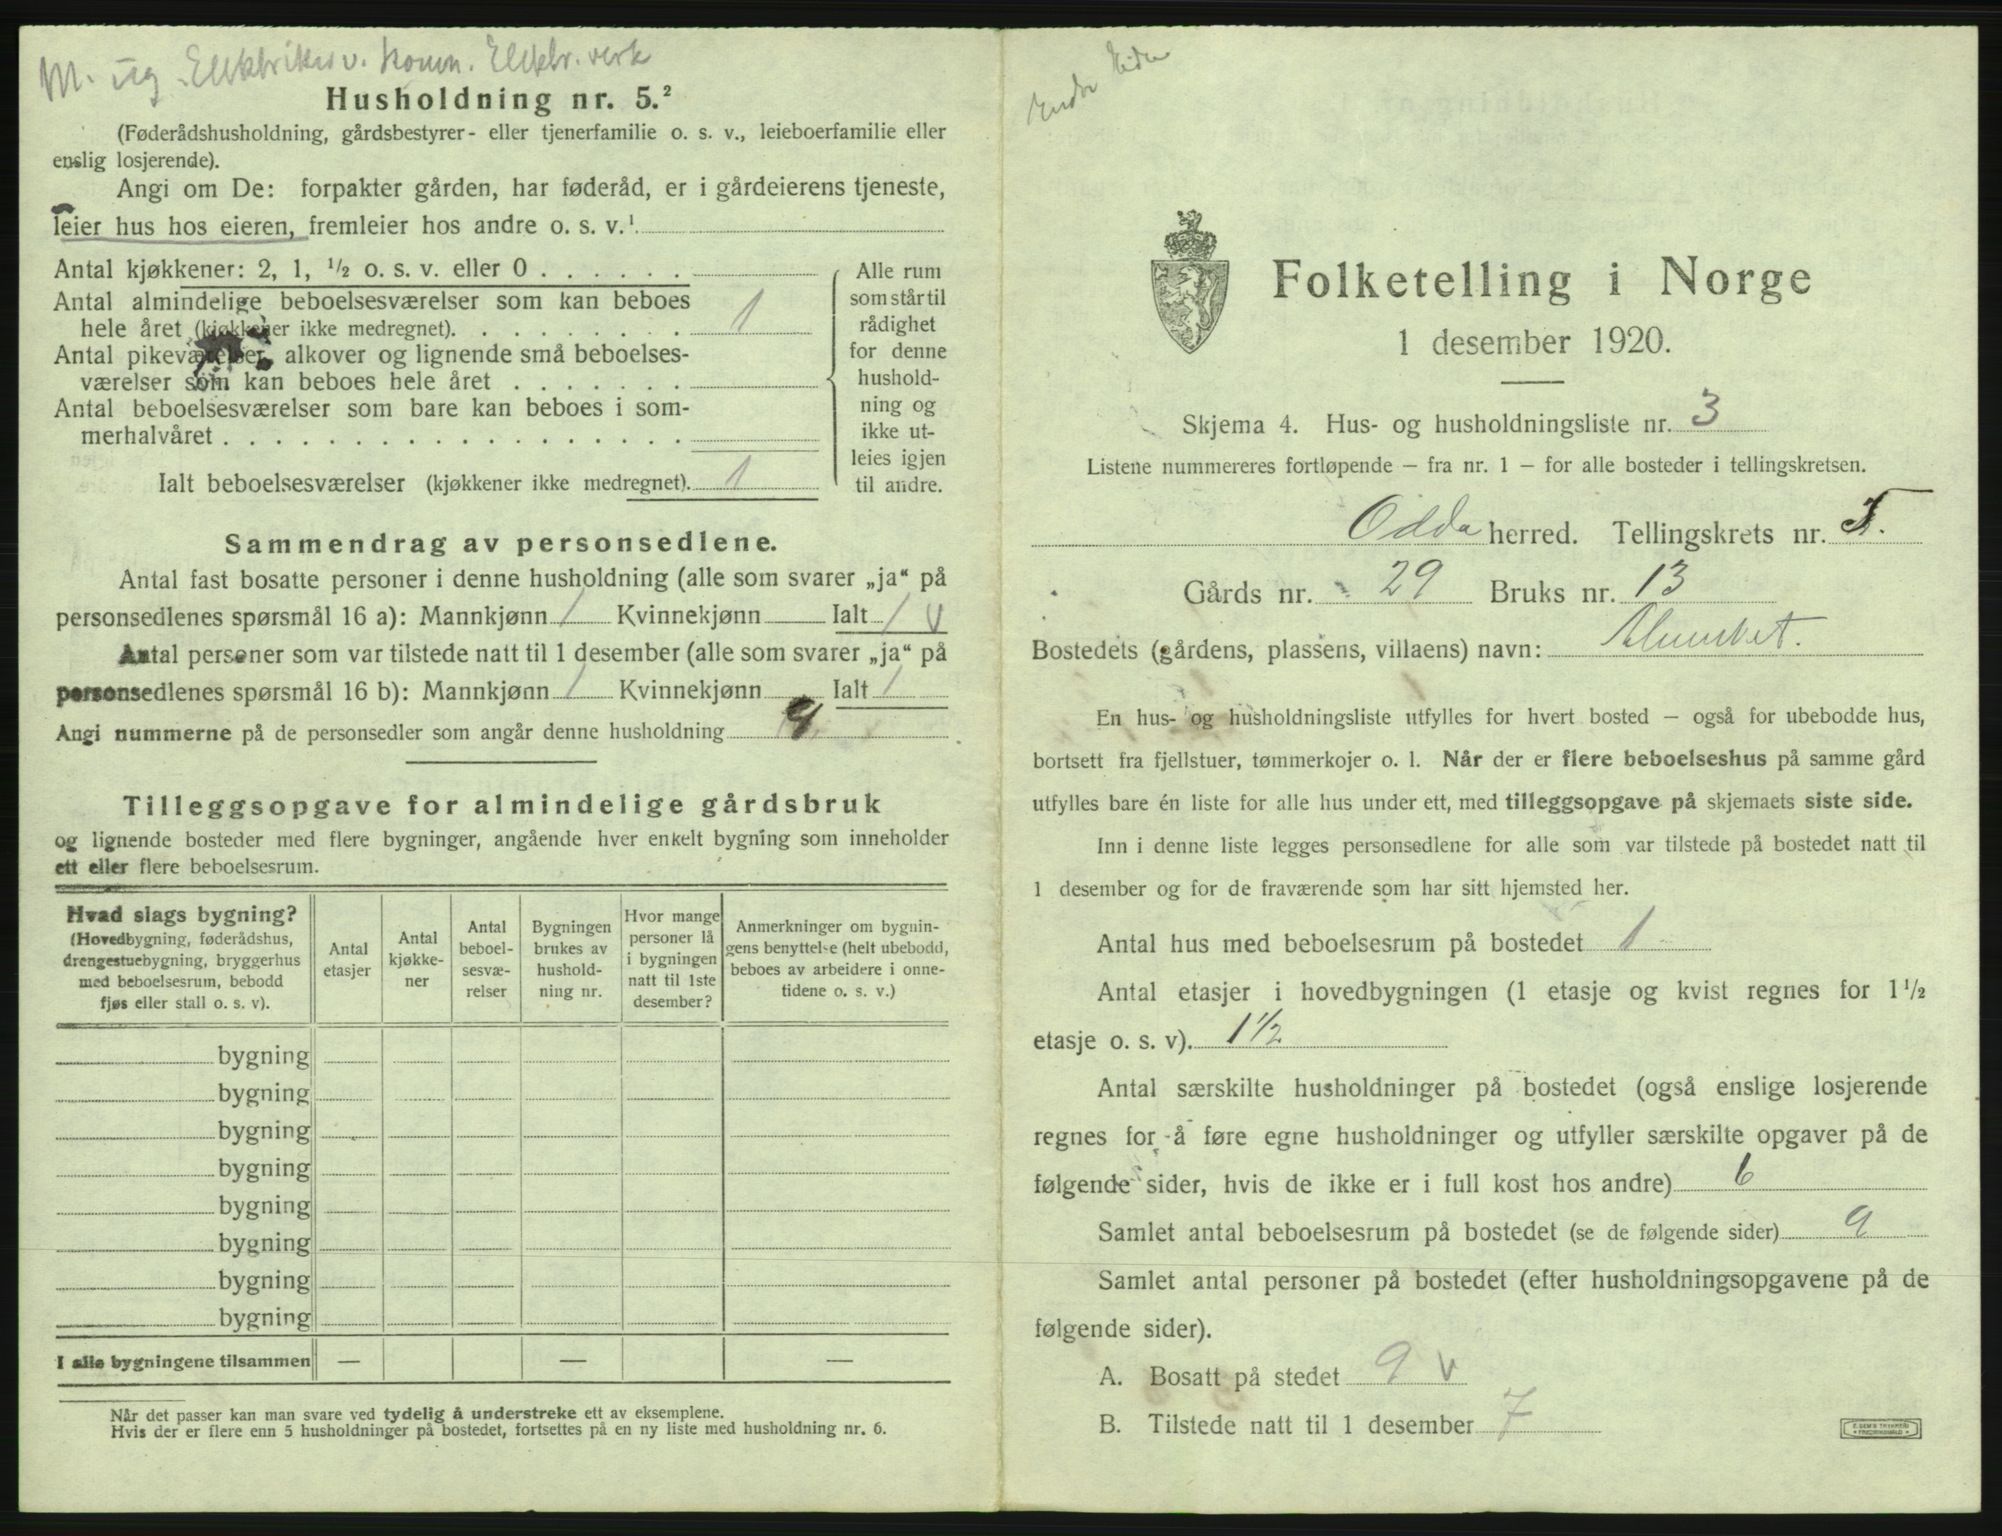 M. ug. Elektriker v. Komm. Elektr. verk
Husholdning nr. 5.²
(Føderådshusholdning, gårdsbestyrer- eller tjenerfamilie o. s. v., leieboerfamilie eller
enslig losjerende).
Angi om De: forpakter gården, har føderåd, er i gårdeierens tjeneste,
leier hus hos eieren, fremleier hos andre o. s. v.¹
Antal kjøkkener: 2, 1, ½ o. s. v. eller 0 . . . . . .
Antal almindelige beboelsesværelser som kan beboes
hele året (kjøkkener ikke medregnet). . . . . . . . . 1
Antal pikeværelser, alkover og lignende små beboelses-
værelser som kan beboes hele året . . . . . . .
Antal beboelsesværelser som bare kan beboes i som-
merhalvåret . . . . . . . . . . . . . . . . . .
Ialt beboelsesværelser (kjøkkener ikke medregnet). 1
Alle rum
som står til
rådighet
for denne
hushold-
ning og
ikke ut-
leies igjen
til andre.
Sammendrag av personsedlene.
Antal fast bosatte personer i denne husholdning (alle som svarer „ja“ på
personsedlenes spørsmål 16 a): Mannkjønn 1 Kvinnekjønn Ialt 1 v
Antal personer som var tilstede natt til 1 desember (alle som svarer „ja“ på
personsedlenes spørsmål 16 b): Mannkjønn 1 Kvinnekjønn Ialt 1
Angi nummerne på de personsedler som angår denne husholdning 9
Tilleggsopgave for almindelige gårdsbruk
og lignende bosteder med flere bygninger, angående hver enkelt bygning som inneholder
ett eller flere beboelsesrum.
Hvad slags bygning?
(Hovedbygning, føderådshus,
drengestuebygning, bryggerhus
med beboelsesrum, bebodd
fjøs eller stall o. s. v).
Antal
etasjer
Antal
kjøkke-
ner
Antal
beboel-
sesvæ-
relser
Bygningen
brukes av
hushold-
ning nr.
Hvor mange
personer lå
i bygningen
natt til 1ste
desember?
Anmerkninger om bygnin-
gens benyttelse (helt ubebodd,
beboes av arbeidere i onne-
tidene o. s. v.)
bygning
bygning
bygning
bygning
bygning
bygning
bygning
bygning
I alle bygningene tilsammen — — —
Når det passer kan man svare ved tydelig å understreke ett av eksemplene.
Hvis der er flere enn 5 husholdninger på bostedet, fortsettes på en ny liste med husholdning nr. 6.
Folketelling i Norge
1 desember 1920.
Skjema 4. Hus- og husholdningsliste nr. 3
Listene nummereres fortløpende — fra nr. 1 — for alle bosteder i tellingskretsen.
Odda herred. Tellingskrets nr. 5.
Gårds nr. 29 Bruks nr. 13
Bostedets (gårdens, plassens, villaens) navn:
En hus- og husholdningsliste utfylles for hvert bosted — også for ubebodde hus,
bortsett fra fjellstuer, tømmerkojer o. l. Når der er flere beboelseshus på samme gård
utfylles bare én liste for alle hus under ett, med tilleggsopgave på skjemaets siste side.
Inn i denne liste legges personsedlene for alle som var tilstede på bostedet natt til
1 desember og for de fraværende som har sitt hjemsted her.
Antal hus med beboelsesrum på bostedet 1
Antal etasjer i hovedbygningen (1 etasje og kvist regnes for 1½
etasje o. s. v). 1½
Antal særskilte husholdninger på bostedet (også enslige losjerende
regnes for å føre egne husholdninger og utfyller særskilte opgaver på de
følgende sider, hvis de ikke er i full kost hos andre) 6
Samlet antal beboelsesrum på bostedet (se de følgende sider) 9
Samlet antal personer på bostedet (efter husholdningsopgavene på de
følgende sider).
A. Bosatt på stedet 9 v
B. Tilstede natt til 1 desember 7